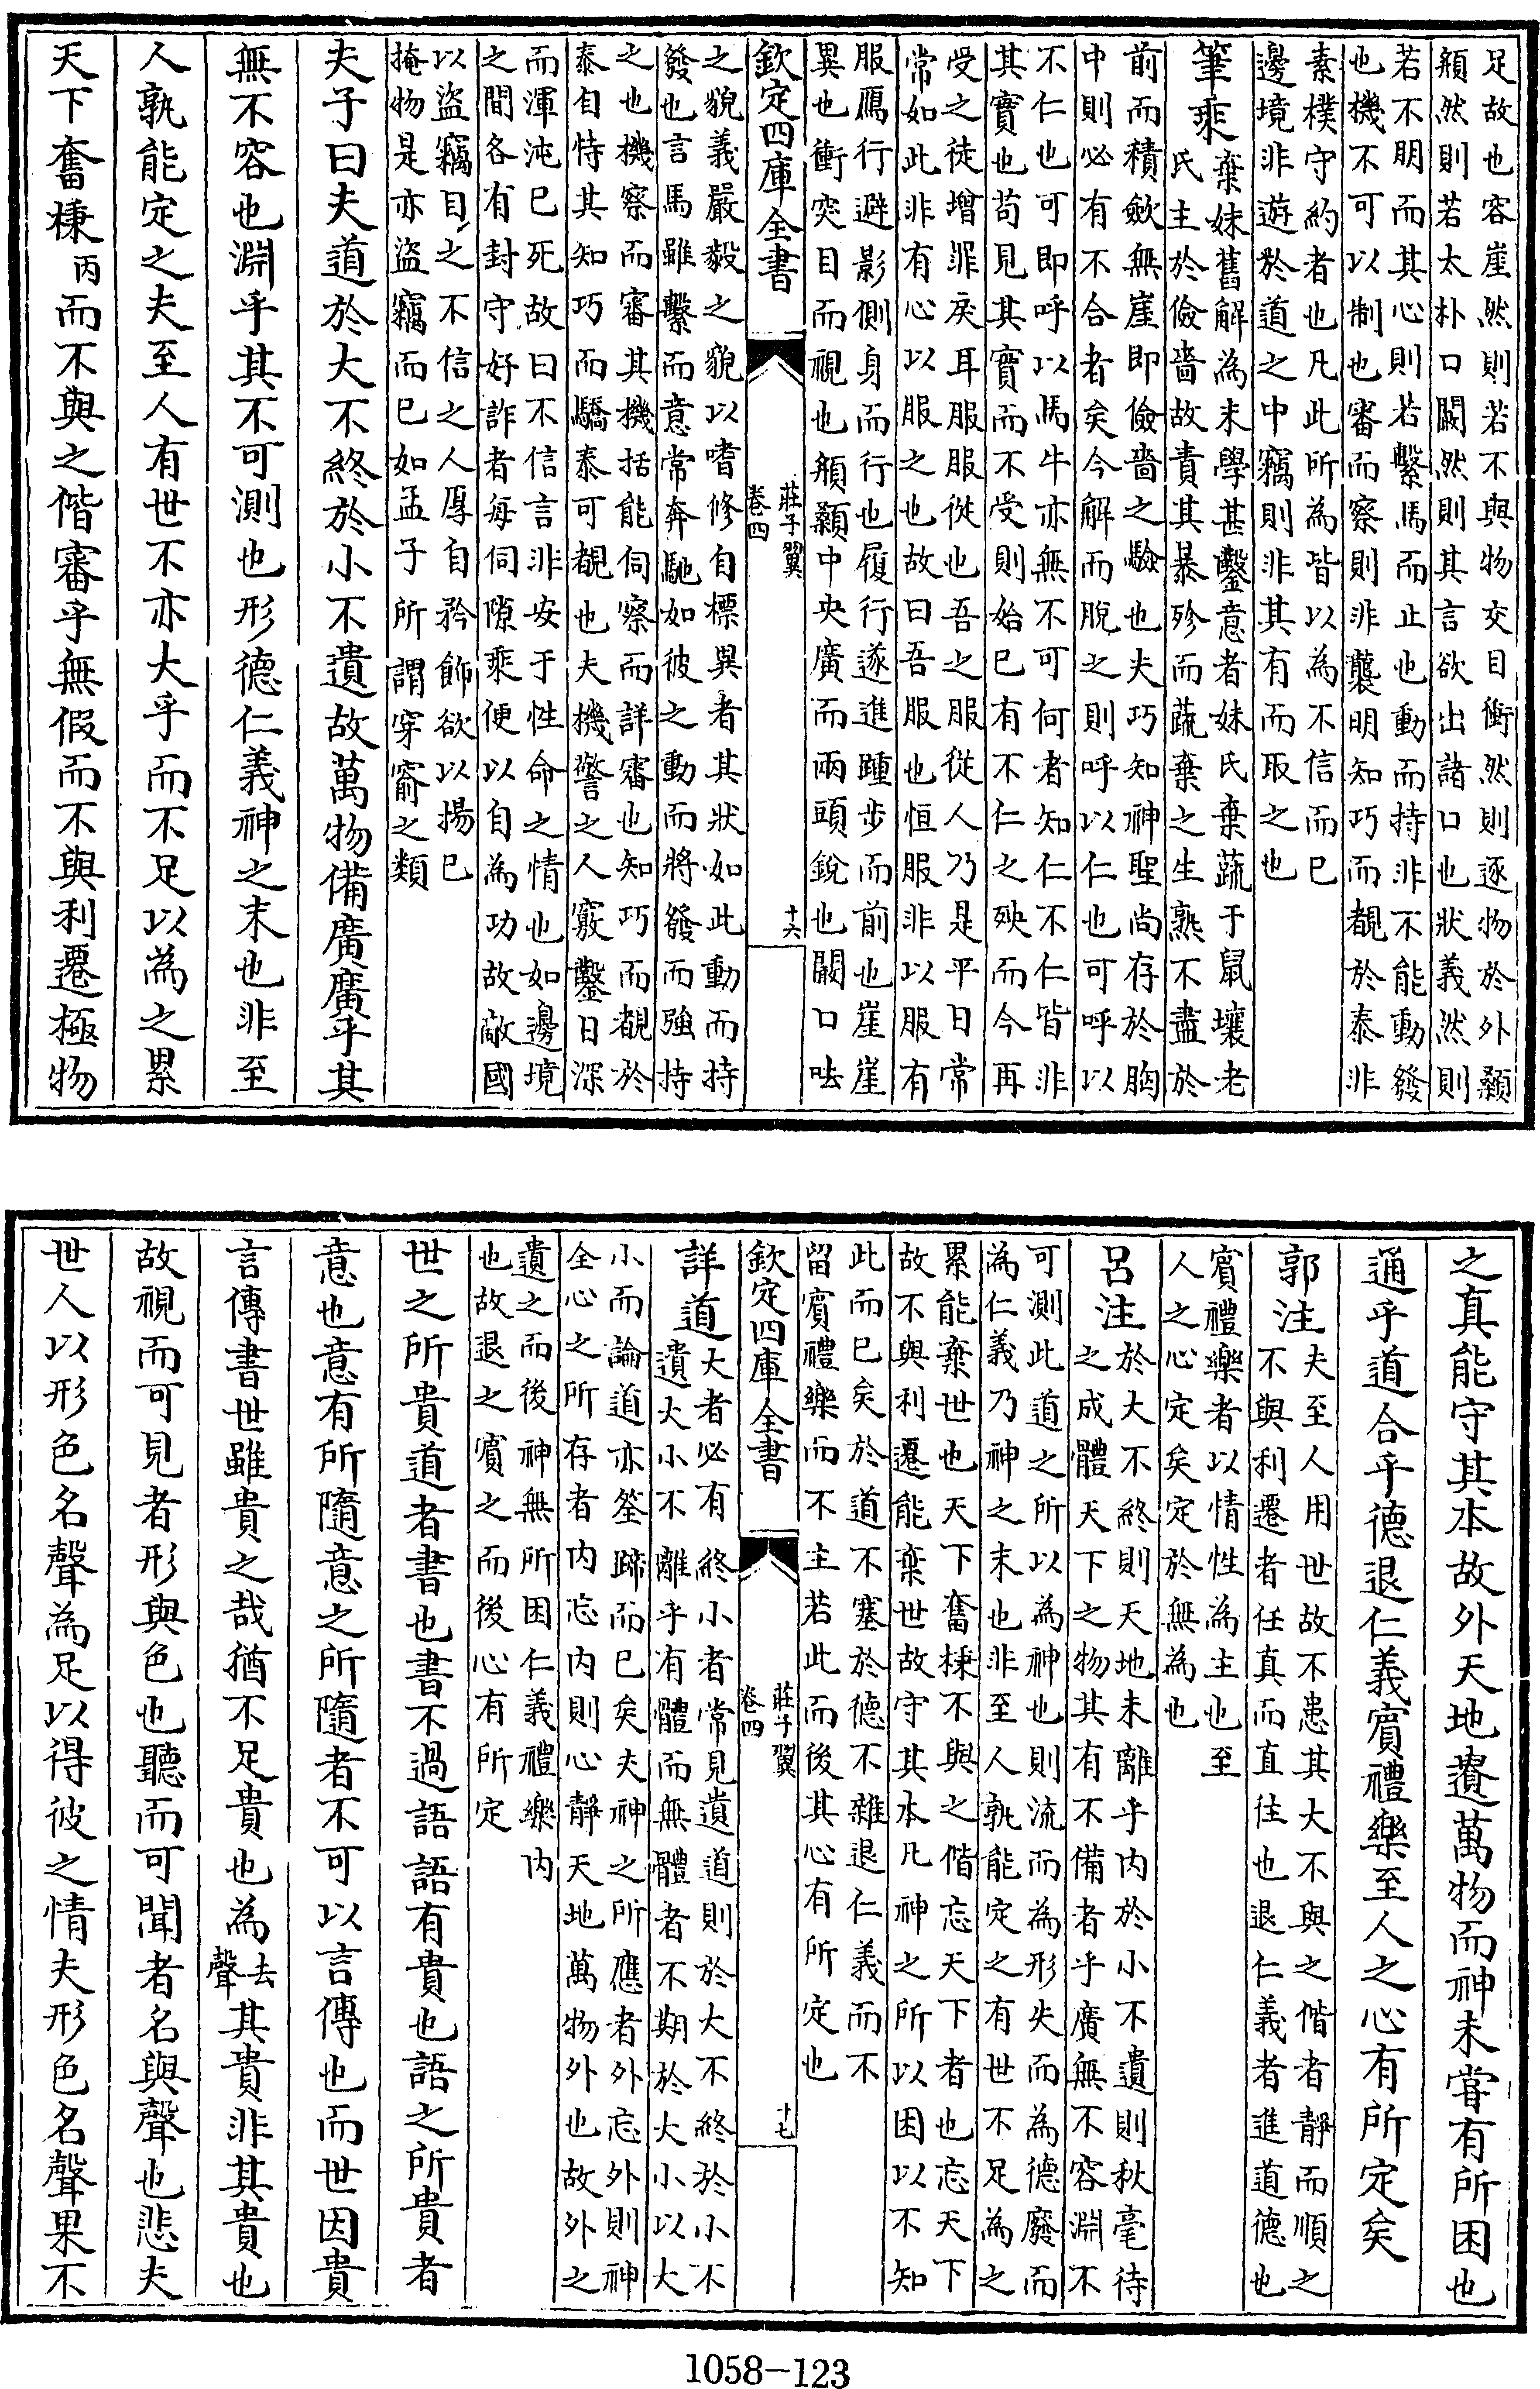 足故也容崖然則若不與物交目衝然則逐物於外顙
頯然則若太朴口闞然則其言欲出諸口也狀義然則
若不朋而其心則若繫馬而止也動而持非不能動發
也機不可以制也審而察則非襲明知巧而覩於泰非
素樸守約者也凡此所為皆以為不信而已
邊境非遊於道之中竊則非其有而取之也
筆乘棄妹舊解為末學甚鑿意者妹氏棄蔬于鼠壤老
氏主於儉嗇故責其暴殄而蔬棄之生熟不盡於
前而積斂無崖即儉嗇之驗也夫巧知神聖尚存於胸
中則必有不合者矣今解而脫之則呼以仁也可呼以
不仁也可即呼以馬牛亦無不可何者知仁不仁皆非
其實也苟見其實而不受則始已有不仁之殃而今再
受之徒增罪戾耳服服從也吾之服從人乃是平日常
常如此非有心以服之也故曰吾服也恒服非以服有
服鴈行避影側身而行也履行遂進踵步而前也崖崖
異也衝突目而視也頯顙中央廣而兩頭銳也闞口呿
欽定四庫全書
莊子翼
卷四
十六
之貌義嚴毅之貌以嗜修自標異者其狀如此動而持
發也言馬雖繫而意常奔馳如彼之動而將發而強持
之也機察而審其機括能伺察而詳審也知巧而覩於
泰自恃其知巧而驕泰可覩也夫機警之人竅鑿日深
而渾沌已死故曰不信言非安于性命之情也如邊境
之間各有封守好詐者每伺隙乘便以自為功故敵國
以盜竊目之不信之人厚自矜飾欲以揚已
掩物是亦盜竊而已如孟子所謂穿窬之類
夫子曰夫道於大不終於小不遺故萬物備廣廣乎其
無不容也淵乎其不可測也形德仁義神之末也非至
人孰能定之夫至人有世不亦大乎而不足以為之累
天下奮棅丙而不與之偕審乎無假而不與利遷極物
之真能守其本故外天地遺萬物而神未嘗有所困也
通乎道合乎德退仁義賓禮樂至人之心有所定矣
郭注夫至人用世故不患其大不與之偕者靜而順之
不與利遷者任真而直往也退仁義者進道德也
賓禮樂者以情性為主也至
人之心定矣定於無為也
呂注於大不終則天地未離乎内於小不遺則秋毫待
之成體天下之物其有不備者乎廣無不容淵不
可測此道之所以為神也則流而為形失而為德廢而
為仁義乃神之末也非至人孰能定之有世不足為之
累能棄世也天下奮棅不與之偕忘天下者也忘天下
故不與利遷能棄世故守其本凡神之所以困以不知
此而已矣於道不塞於德不雜退仁義而不
留賓禮樂而不主若此而後其心有所定也
欽定四庫全書
莊子翼
卷四
十七
詳道大者必有終小者常見遺道則於大不終於小不
遺大小不離乎有體而無體者不期於大小以大
小而論道亦筌蹄而已矣夫神之所應者外忘外則神
全心之所存者内忘内則心靜天地萬物外也故外之
遺之而後神無所困仁義禮樂内
也故退之賓之而後心有所定
世之所貴道者書也書不過語語有貴也語之所貴者
意也意有所隨意之所隨者不可以言傳也而世因貴
言傳書世雖貴之哉猶不足貴也為去聲其貴非其貴也
故視而可見者形與色也聽而可聞者名與聲也悲夫
世人以形色名聲為足以得彼之情夫形色名聲果不
1058-123